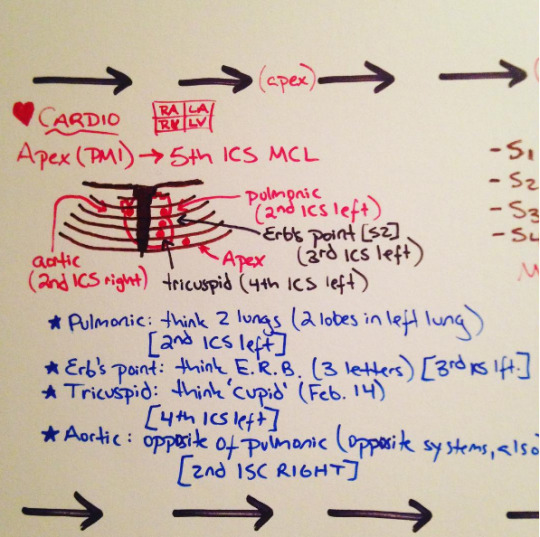 (apex)
♥ CARDIO
RA LA
RV LV
Apex (PMI) → 5th ICS MCL
-S1
-S2
-S3
-S4
pulmonic
(2nd ICS left)
Erb's point [S2]
(3rd ICS left)
Apex
aortic
(2nd ICS right)
tricuspid (4th ICS left)
★ Pulmonic: think 2 lungs (2 lobes in left lung)
[2nd ICS left]
★ Erb's point: think E.R.B. (3 letters) [3rd ICS lft.]
★ Tricuspid: think 'cupid' (Feb. 14)
[4th ICS left]
★ Aortic: opposite of pulmonic (opposite systems, also
[2nd ISC RIGHT]